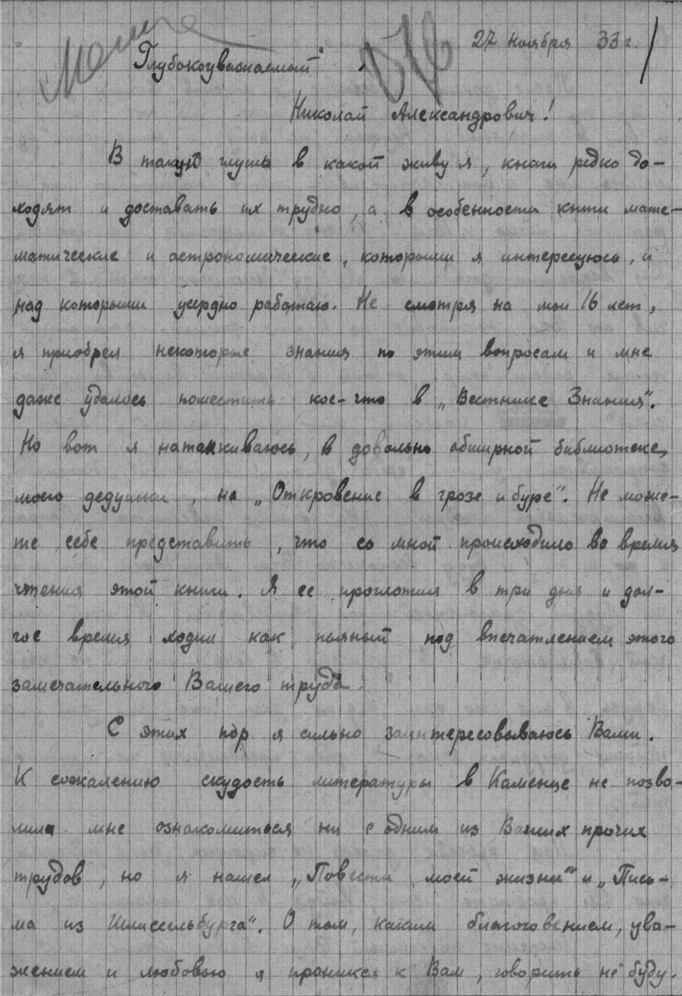 27 ноября 33 г.
Глубокоуважаемый
Николай Александрович!
В такую глушь в какой живу я, книги редко до-
ходят и доставать их трудно, а в особенности книги мате-
матические и астрономические, которыми я интересуюсь, и
над которыми усердно работаю. Не смотря на мои 16 лет,
я приобрел некоторые знания по этим вопросам и мне
даже удалось поместить кое-что в „Вестнике Знания".
Но вот я натанкиваюсь, в довольно обширной библиотеке,
моего дедушки, на „Откровение в грозе и буре". Не може-
те себе представить, что со мной происходило во время
чтения этой книги. Я ее проглотил в три дня и дол-
гое время ходил как пьяный под впечатлением этого
замечательного Вашего труда.
С этих пор я сильно заинтересовываюсь Вами.
К сожалению скудость литературы в Каменце не позво-
лила мне ознакомиться ни с одним из Ваших прочих
трудов, но я нашел „Повести моей жизни" и „Пись-
ма из Шлиссельбурга". О том, каким благоговением, ува-
жением и любовью я проникся к Вам, говорить не буду.